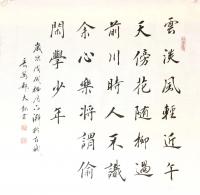 雲淡風輕近午
天傍花隨柳過
前川時人不識
余心樂將謂偷
閑學少年
歲次戊戌